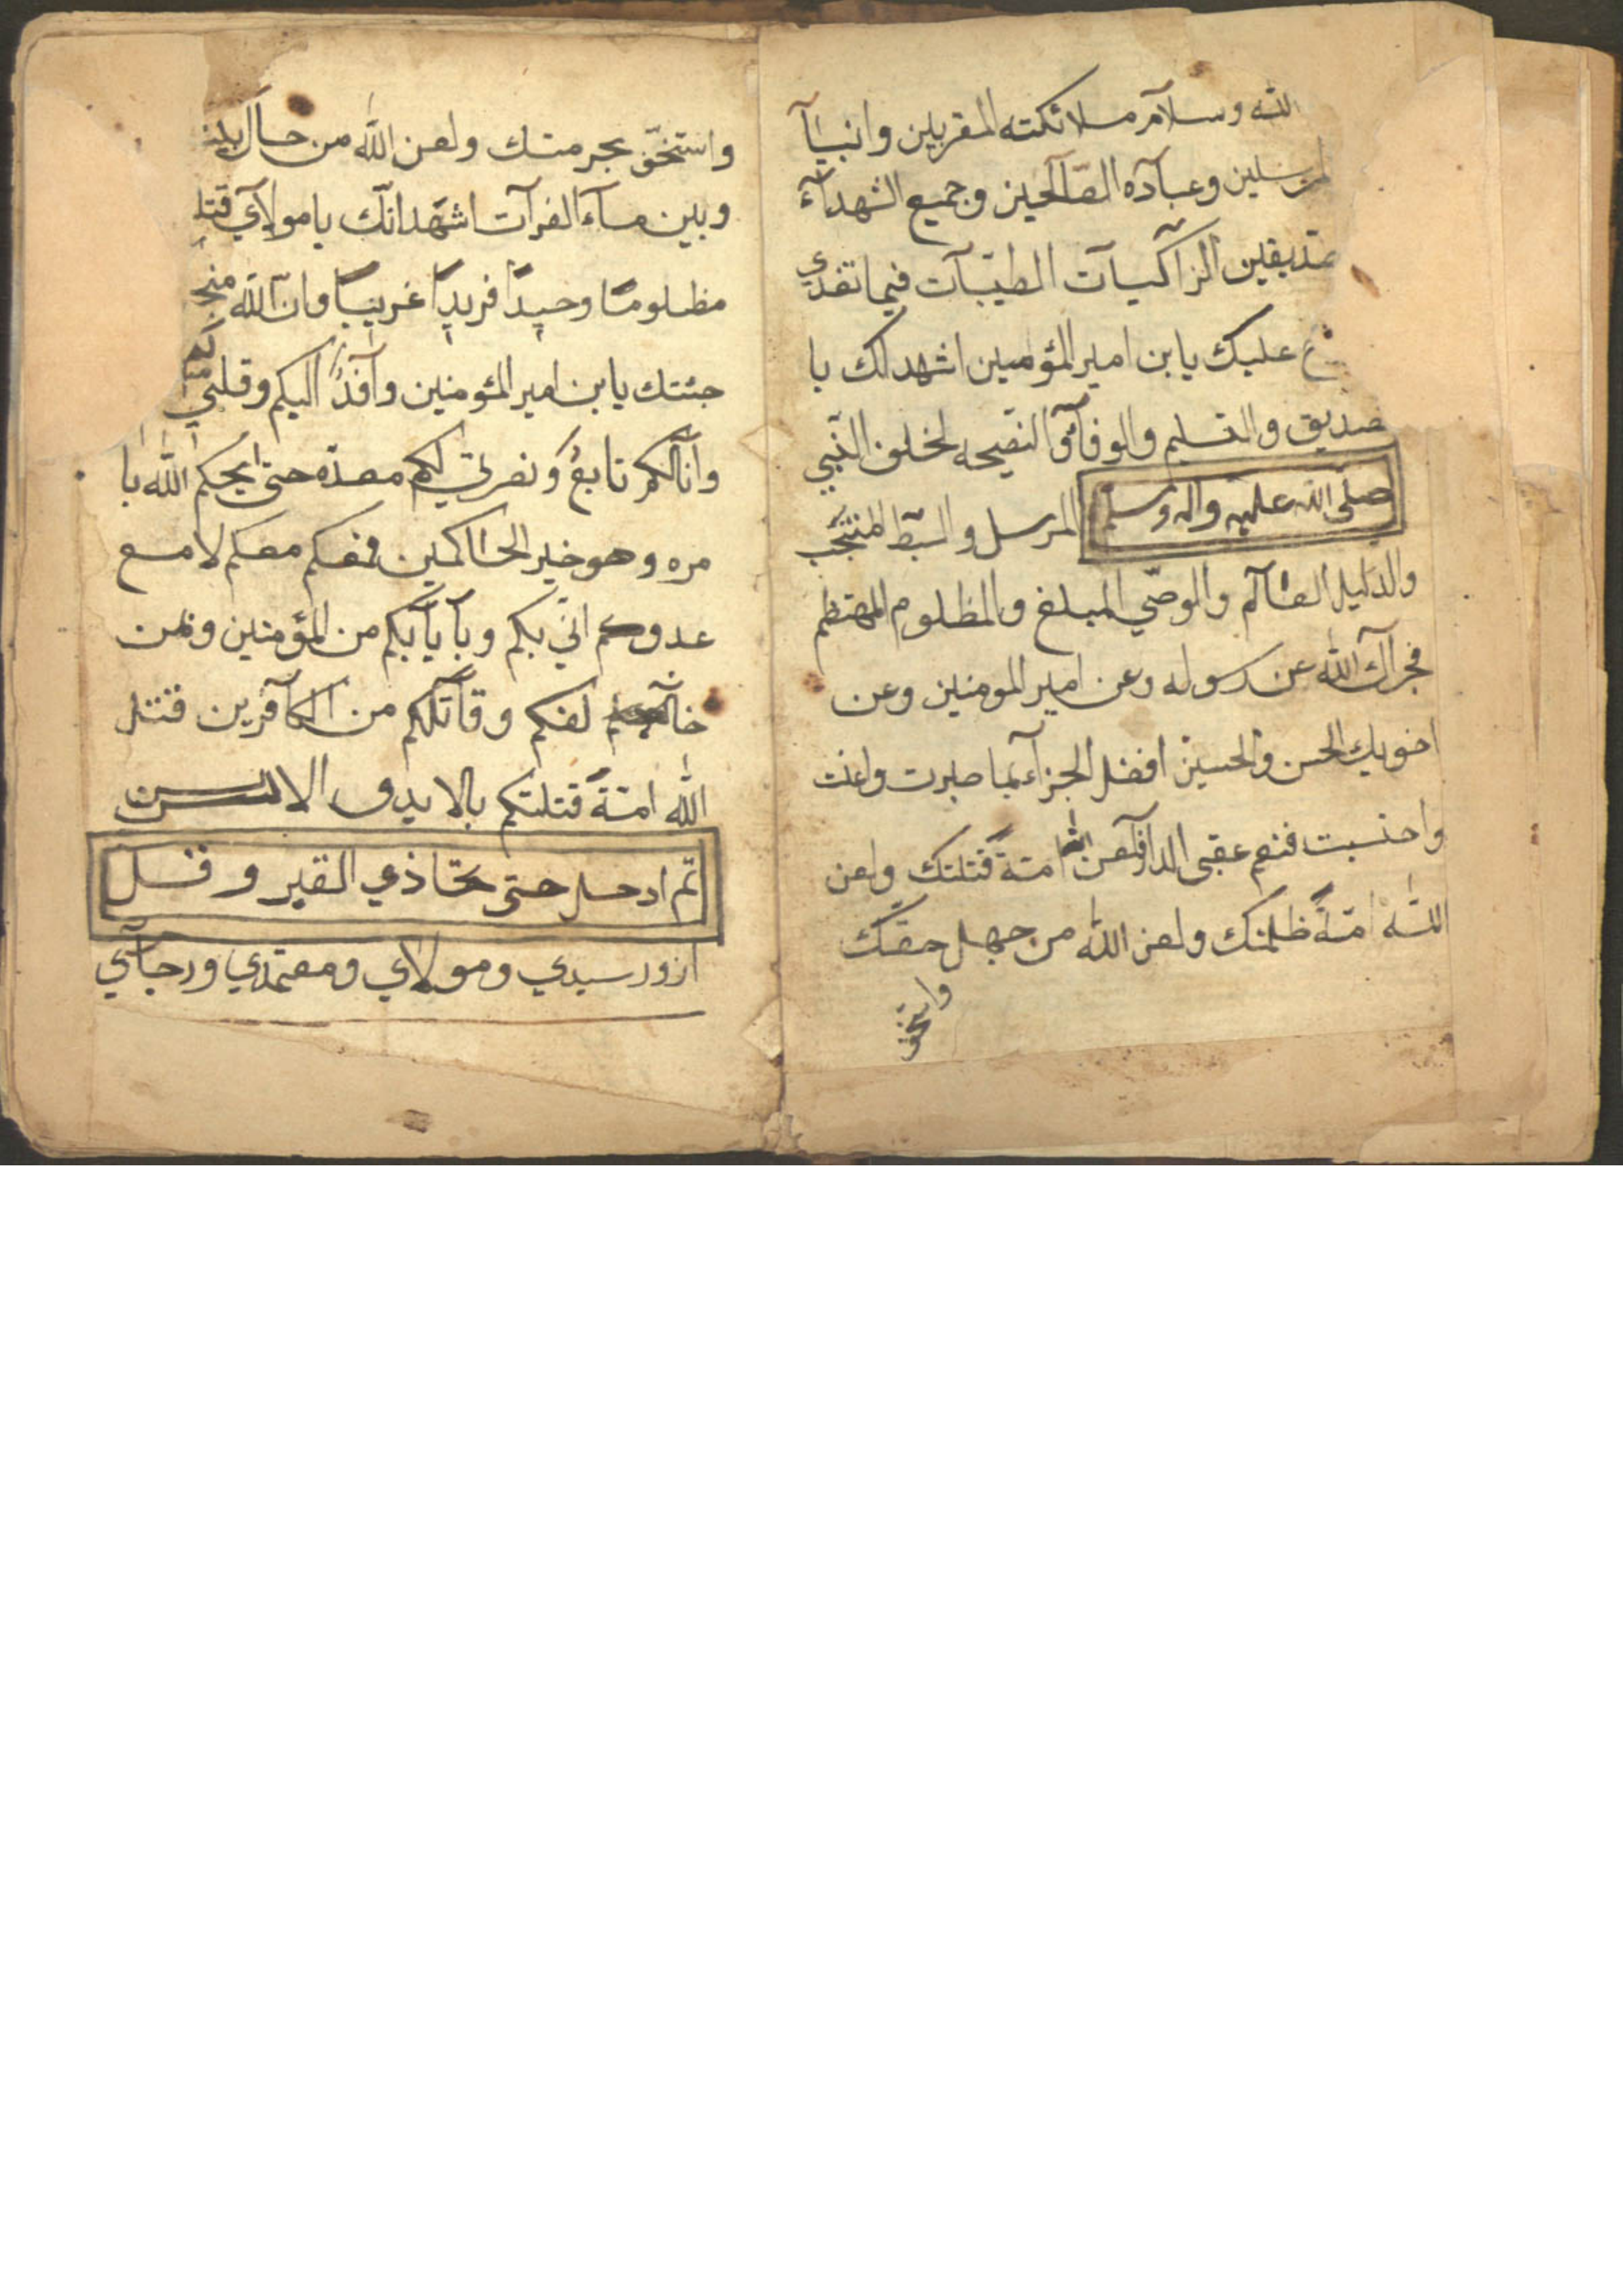 الله وسلآم ملائكته المقربين وانبيآ
لمرسلين وعبآده الصّآلحين وجميع الشهدآء
صديقين الزآكيآت الطيّبآت فيما تغدي
ح عليك يا بن امير المؤمنين اشهد لك با
صديق والتسليم والوفآء والنصيحه لخلف النّبي
صلّى الله عليه واله وسلم المرسل والسّبط المنتجب
والدليل العآلم والوصّي المبلغ والمظلوم المهتظم
فجزآك الله عن رسوله وعن امير المومنين وعن
اخويك الحسن والحسين افضل الجزآء بما صبرت واعنت
واحتسبت فنعم عقبى الدار لعن الله امّةً قتلتك ولعن
الله امّةً ظلمتك ولعن الله من جهل حقّك
واستخف
واستخفّ بحرمتك ولعن الله من حال بين
وبين مآء الفرآت اشهد انّك يا مولآي قتل
مظلومًا وحيدًا فريدًا غريبًا وانّ الله منجز
جئتك يا بن امير المؤمنين وآفدًا اليكم وقلبي
وانا لكم تابعٌ ونصرتي لكم معدّه حتى يحكم الله با
مره وهو خير الحاكمين فمعكم معكم لا مع
عدوكم انّي بكم وبآيآبكم من المؤمنين وبمن
خآلفكم وقآتلكم من الكآفرين قتل
الله امّةً قتلتكم بالايدى والالسن
ثم ادخل حتى تحاذي القبر وقل
ازور سيدي ومولآي ومعتمدي ورجآئي